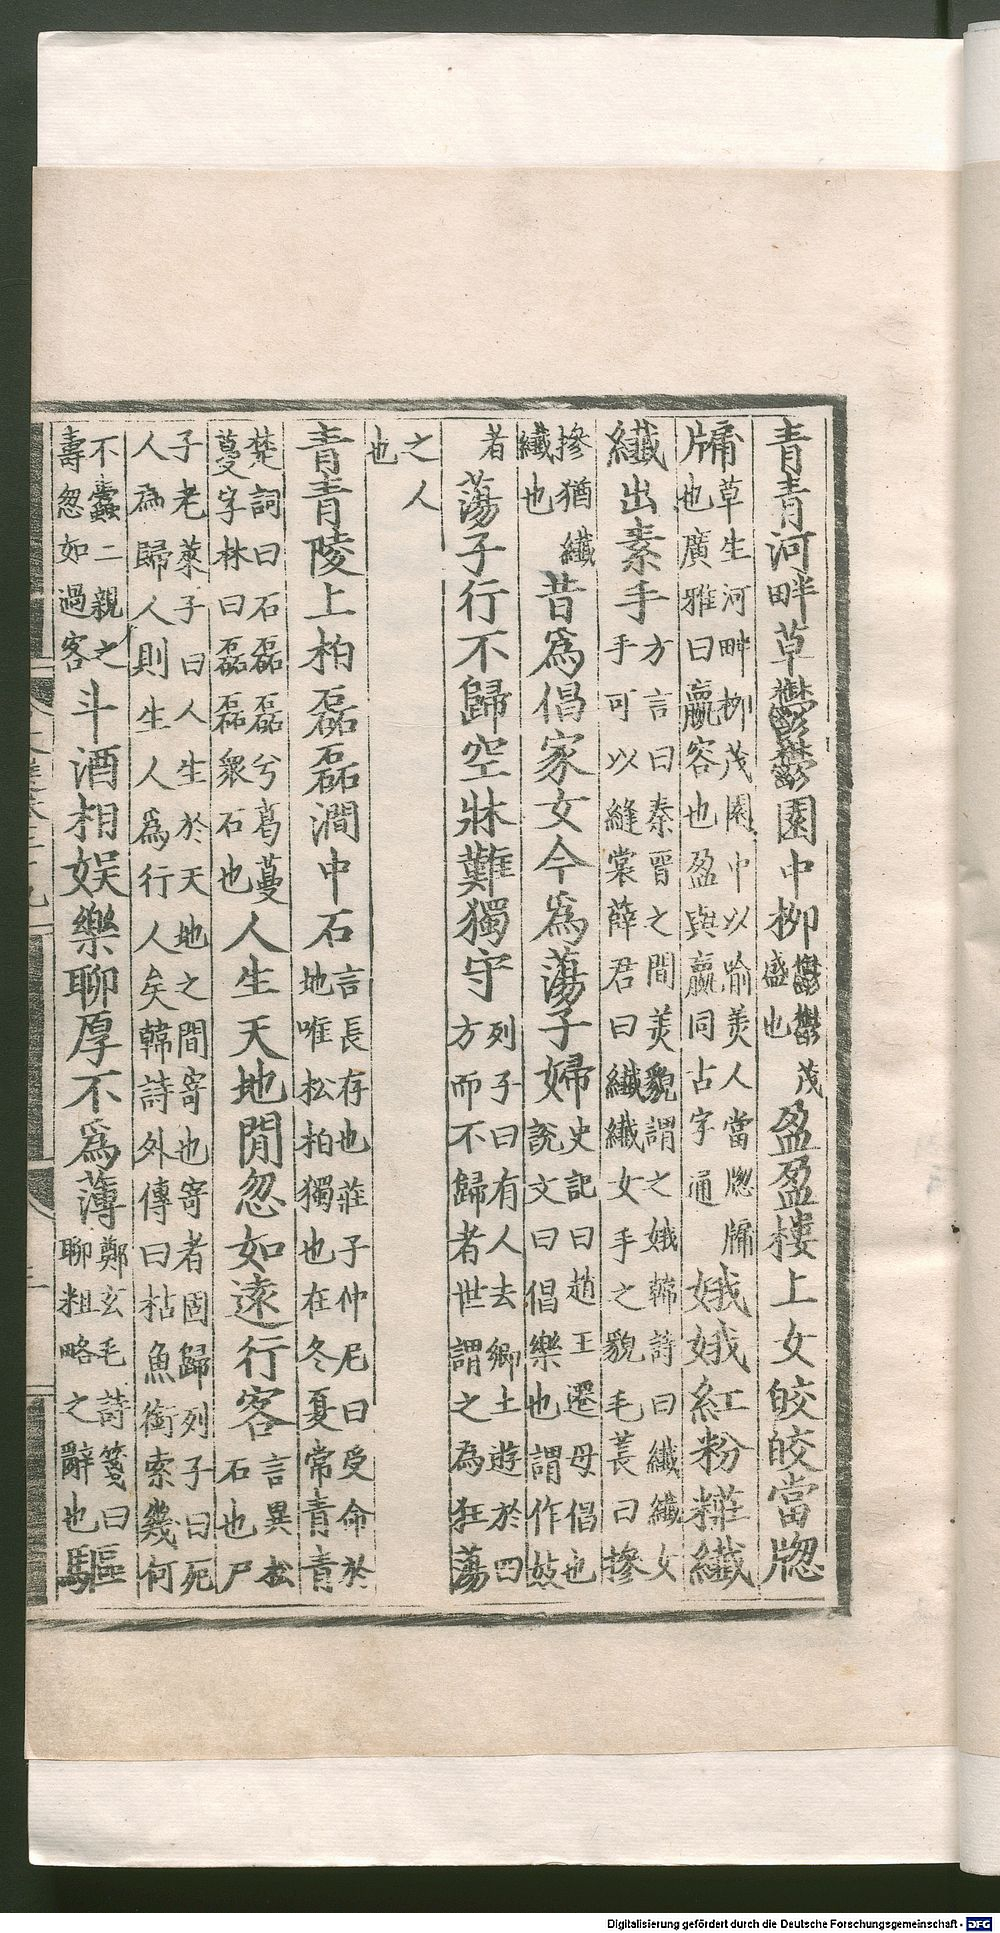 青青河畔草鬱鬱園中柳鬱鬱茂盛也盈盈樓上女皎皎當牕
牖草生河畔柳茂園中以喻美人當牕牖牖也廣雅曰嬴容也盈與嬴同古字通娥娥紅粉糚纖
纖出素手方言曰秦晉之間美貌謂之娥韓詩曰纖纖女手可以縫裳薛君曰纖纖女手之貌毛萇曰摻
摻猶纖纖也昔爲倡家女今爲蕩子婦史記曰趙王遷母倡也說文曰倡樂也謂作妓
者蕩子行不歸空牀難獨守列子曰有人去鄉土遊於四方而不歸者世謂之為狂蕩
之人也
青青陵上柏磊磊澗中石言長存也莊子仲尼曰受命於地唯松柏獨也在冬夏常青青
楚詞曰石磊磊兮葛蔓蔓字林曰磊磊衆石也人生天地間忽如遠行客言異松石也尸
子老萊子曰人生於天地之間寄也寄者固歸列子曰死人為歸人則生人爲行人矣韓詩外傳曰枯魚銜索幾何
不蠹二親之壽忽如過客斗酒相娱樂聊厚不爲薄鄭玄毛詩箋曰聊粗略之辭也驅
Digitalisierung gefördert durch die Deutsche Forschungsgemeinschaft - DFG